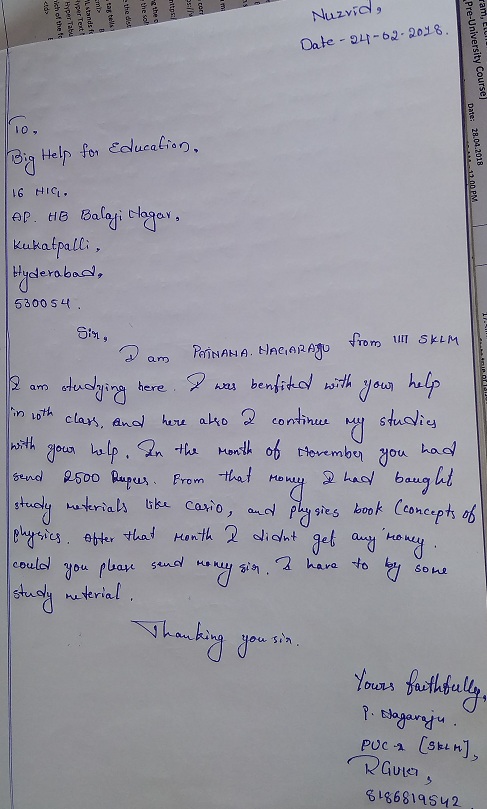 Nuzvid,
Date - 24-02-2018.
To,
Big Help for Education,
16 HIG,
AP. HB Balaji Nagar,
Kukatpalli,
Hyderabad,
530054.
Sir,
I am PAINANA. NAGARAJU from IIIT SKLM
I am studying here. I was benfited with your help
in 10th class, and here also I continue my studies
with your help. In the month of November you had
send 2500 Rupes. From that money I had bought
study meterials like casio, and physics book (concepts of
physics. After that month I didnt get any money.
could you please send money sir. I have to by some
study meterial.
Thanking you sir.
Yours faithfully,
P. Nagaraju.
PUC-2 [SKLM],
8186819542
Pre-University Course)
Date: 28.04.2018